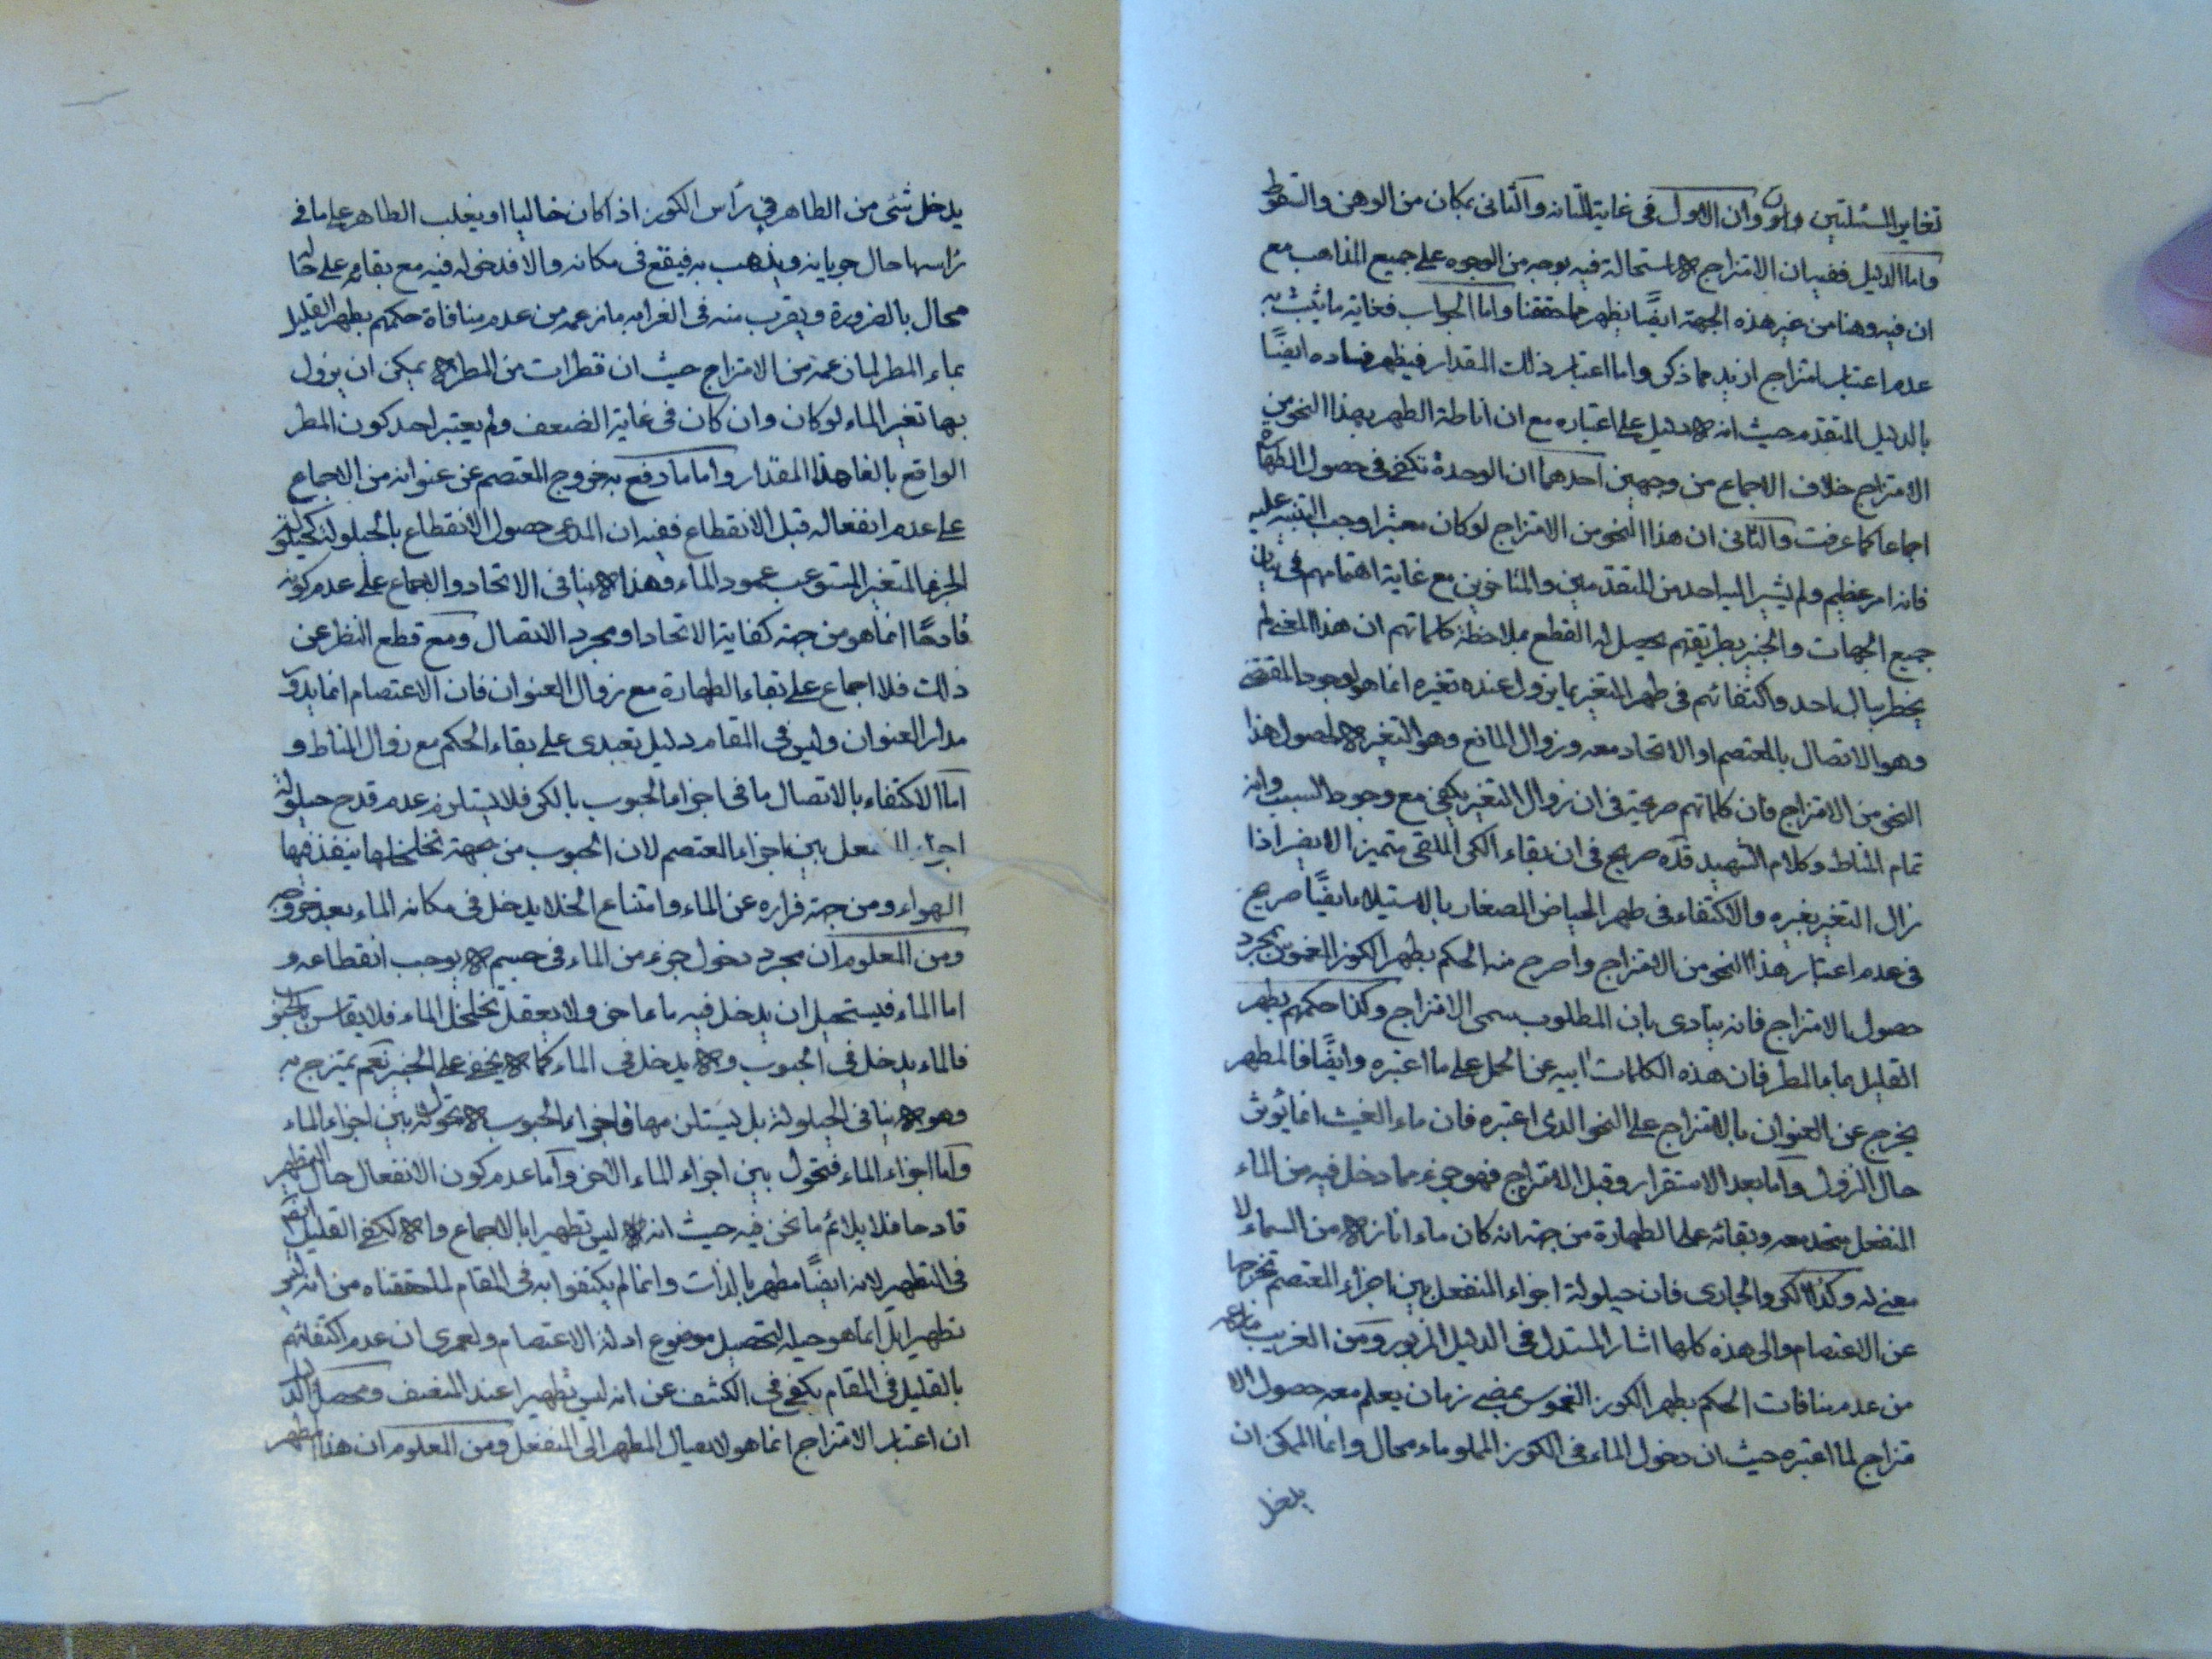 تغاير المسئلتين وان الاول فى غاية المتانه والثانى بمكان من الوهن والسقوط
واما الدليل ففيه ان الامتزاج لا استحالة فيه بوجه من الوجوه على جميع المذاهب مع
ان فيه وهنا من غير هذه الجهة ايضًا يظهر مما حققنا واما الجواب فغاية ما يثبت به
عدم اعتبار امتزاج ازيد مما ذكر واما اعتبار ذلك المقدار فيظهر فساده ايضًا
بالدليل المتقدم حيث انه لا دليل على اعتباره مع ان اناطة الطهر بهذا النحو من
الامتزاج خلاف الاجماع من وجهين احدهما ان الوحدة تكفى فى حصول الطهارة
اجماعا كما عرفت والثانى ان هذا النحو من الامتزاج لو كان معتبرا وجب التنبيه عليه
فانه امر عظيم ولم يشير اليه احد من المتقدمين والمتاخرين مع غاية اهتمامهم فى بيان
جميع الجهات والخبير بطريقتهم يحصل له القطع بملاحظة كلماتهم ان هذا المعنى لم
يخطر ببال احد واكتفائهم فى طهر المتغير بما يزول عنده تغيره انما هو لوجود المقتضى
وهو الاتصال بالمعتصم او الاتحاد معه وزوال المانع وهو التغير لا لحصول هذا
النحو من الامتزاج فان كلماتهم صريحة فى ان زوال التغير يكفى مع وجود السبب وانه
تمام المناط وكلام الشهيد قده صريح فى ان بقاء الكر الملاقى متميزا لا يضر اذا
زال التغير بغيره والاكتفاء فى طهر الحياض الصغار بالاستيلاء ايضًا صريح
فى عدم اعتبار هذا النحو من الامتزاج واصرح منه الحكم بطهر الكوز المغموس بمجرد
حصول الامتزاج فانه ينادى بان المطلوب مسمى الامتزاج وكذا حكمهم بطهر
القليل بماء المطر فان هذه الكلمات ابيه عن الحمل على ما اعتبره وايضًا فالمطهر
يخرج عن العنوان بالامتزاج على النحو الذى اعتبره فان ماء الغيث انما يوثر
حال النزول واما بعد الاستقرار وقبل الامتزاج فهو جزء مما دخل فيه من الماء
المنفعل متحد معه وبقائه على الطهارة من جهة انه كان ماء انازلا من السماء لا
معنى له وكذا الكر والجارى فان حيلولة اجزاء المنفعل بين اجزاء المعتصم تخرجها
عن الاعتصام والى هذه كلها اشار المستدل فى الدليل المزبور ومن الغريب ما زعمه
من عدم منافات الحكم بطهر الكوز المغموس بمضى زمان يعلم معه حصول الا
متزاج لما اعتبره حيث ان دخول الماء فى الكوز المملو ماء محال وانما الممكن ان
يدخل
يدخل شئ من الطاهر فى رأس الكوز اذا كان خاليا او يغلب الطاهر على ما فى
راسها حال جريانه ويذهب به فيقع فى مكانه والا فدخوله فيه مع بقائه على حاله
محال بالضرورة ويقرب منه فى الغرابه ما زعمه من عدم منافاة حكمهم بطهر القليل
بماء المطر لما زعمه من الامتزاج حيث ان قطرات من المطر لا يمكن ان يزول
بها تغير الماء لو كان وان كان فى غاية الضعف ولم يعتبر احد كون المطر
الواقع بالغا هذا المقدار واما ما دفع به خروج المعتصم عن عنوانه من الاجماع
على عدم انفعاله قبل الانقطاع ففيه ان المدعى حصول الانقطاع بالحيلولة كحيلولة
الجزء المتغير المستوعب عمود الماء وهذا لا ينافى الاتحاد والاجماع على عدم كونه
قادحًا انما هو من جهة كفاية الاتحاد او مجرد الاتصال ومع قطع النظر عن
ذلك فلا اجماع على بقاء الطهارة مع زوال العنوان فان الاعتصام انما يدور
مدار العنوان وليس فى المقام دليل تعبدى على بقاء الحكم مع زوال المناط و
اما الاكتفاء بالاتصال ما فى اجزاء الحبوب بالكر فلا يستلزم عدم قدح حيلولة
اجزاء المنفعل بين اجزاء المعتصم لان الحبوب من جهة تخلخلها ينفذ فيها
الهواء ومن جهة فراره عن الماء وامتناع الخلا يدخل فى مكانه الماء بعد خروجه
ومن المعلوم ان مجرد دخول جزء من الماء فى جسم لا يوجب انقطاعه و
اما الماء فيستحيل ان يدخل فيه ماء اخر ولا يعقل تخلخل الماء فلا يقاس بالحبوب
فالماء يدخل فى الحبوب ولا يدخل فى الماء كما لا يخفى على الخبير نعم يمتزج به
وهو لا ينافى الحيلولة بل يستلزمها فاجزاء الحبوب لا تحول بين اجزاء الماء
واما اجزاء الماء فتحول بين اجزاء الماء الاخر واما عدم كون الانفعال حال التطهير
قادحا فلا يلائم ما نحن فيه حيث انه ليس تطهيرا بالاجماع والا لكفى القليل ايضا
فى التطهير لانه ايضًا مطهر بالذات وانما لم يكتفوا به فى المقام لما حققناه من انه ليس
تطهيرا بل انما هو حيلة لتحصيل موضوع ادلة الاعتصام ولعمرى ان عدم اكتفائهم
بالقليل فى المقام يكفى فى الكشف عن انه ليس تطهيرا عند المنصف ومحصل الدليل
ان اعتبار الامتزاج انما هو لايصال المطهر الى المنفعل ومن المعلوم ان هذا المطهر